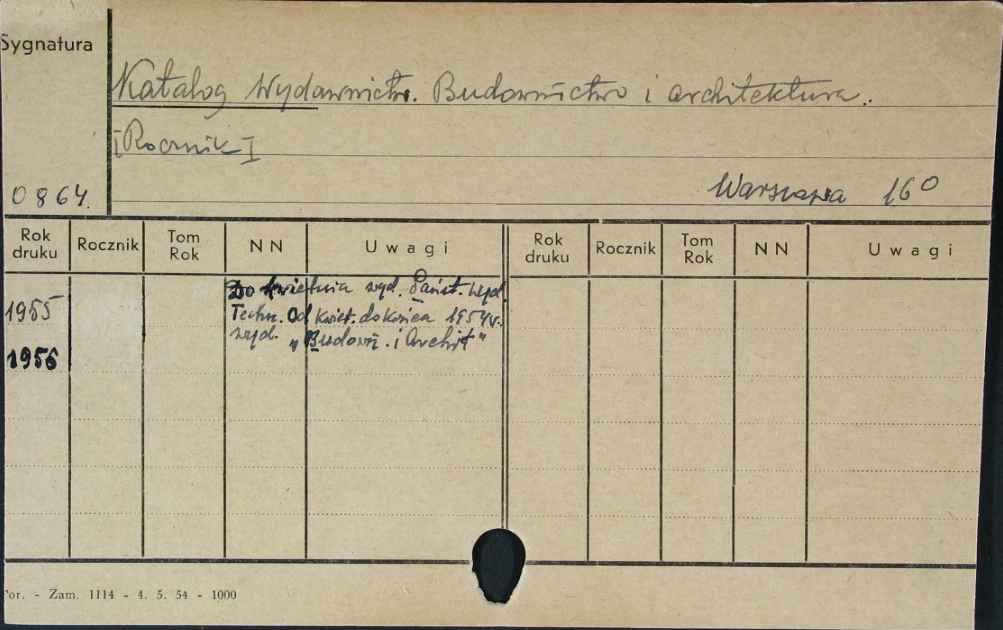 Sygnatura
Katalog Wydawnictw. Budownictwo i architektura.
[Rocznik]
0864.
Warszawa 16⁰
Rok druku Rocznik Tom Rok NN Uwagi Rok druku Rocznik Tom Rok NN Uwagi
1955
Do kwietnia wyd. Państ. Wyd.
Techn. Od kwiet. do końca 1954r.
wyd. „Budown. i Archit"
1956
or. - Zam. 1114 - 4. 5. 54 - 1000